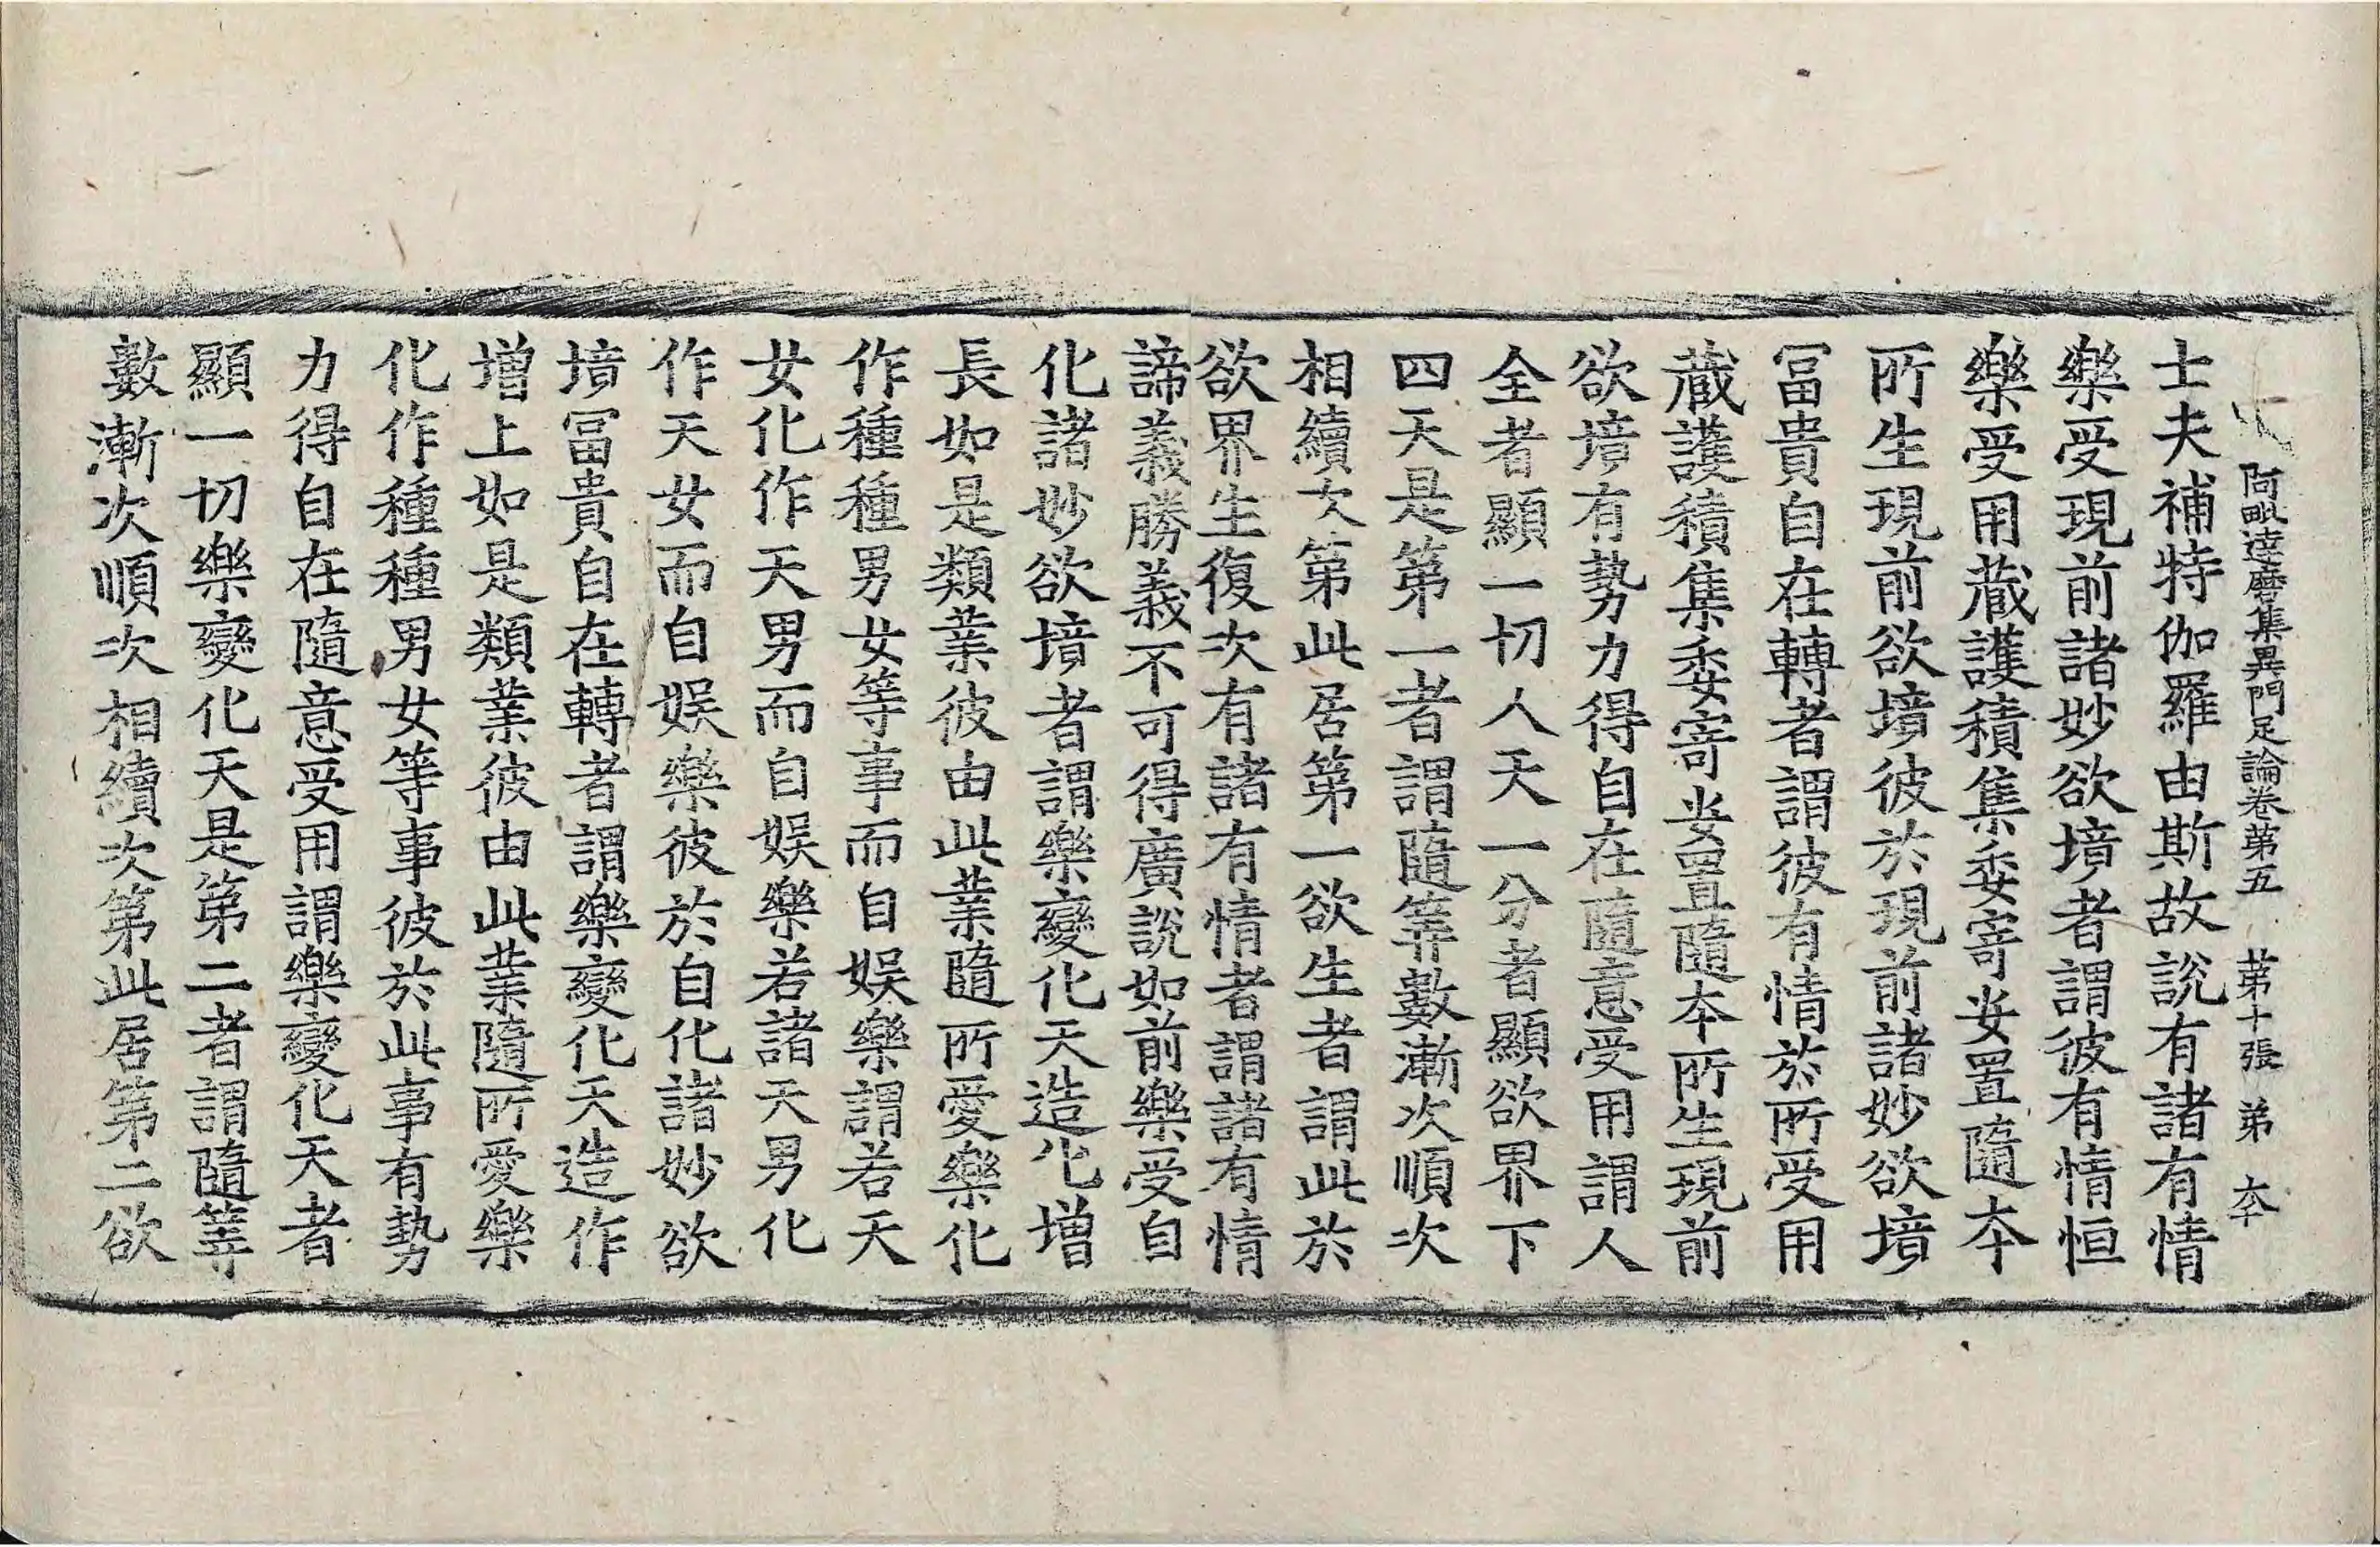 阿毗達磨集異門足論卷第五 第十張 弟 夲
士夫補特伽羅由斯故說有諸有情
樂受現前諸妙欲境者謂彼有情恒
樂受用蔵護積集委寄安置隨夲
所生現前欲境彼於現前諸妙欲境
冨貴自在轉者謂彼有情於所受用
蔵護積集委寄安置隨夲所生現前
欲境有勢力得自在隨意受用謂人
全者顯一切人天一分者顯欲界下
四天是第一者謂隨等數漸次順次
相續次第此居第一欲生者謂此於
欲界生復次有諸有情者謂諸有情
諦義勝義不可得廣說如前樂受自
化諸妙欲境者謂樂變化天造化增
長如是類業彼由此業隨所愛樂化
作種種男女等事而自娛樂謂若天
女化作天男而自娛樂若諸天男化
作天女而自娛樂彼於自化諸妙欲
境冨貴自在轉者謂樂變化天造作
增上如是類業彼由此業隨所愛樂
化作種種男女等事彼於此事有勢
力得自在隨意受用謂樂變化天者
顯一切樂變化天是第二者謂隨等
數漸次順次相續次第此居第二欲